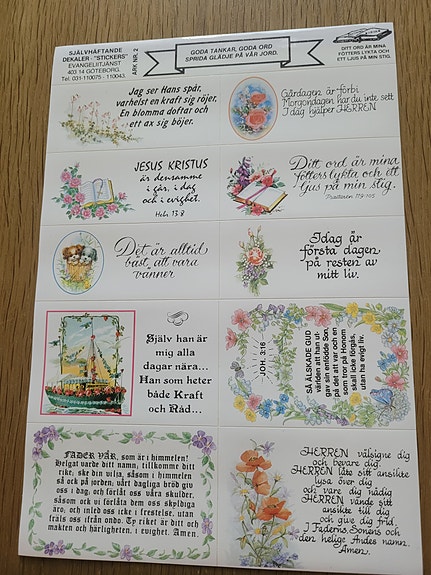 SJÄLVHÄFTANDE
DEKALER - "STICKERS"
EVANGELIITJÄNST
403 14 GÖTEBORG.
Tel. 031-110075 - 110043.
ARK NR. 2
GODA TANKAR, GODA ORD
SPRIDA GLÄDJE PÅ VÅR JORD.
DITT ORD ÄR MINA
FÖTTERS LYKTA OCH
ETT LJUS PÅ MIN STIG.
Jag ser Hans spår,
varhelst en kraft sig röjer,
En blomma doftar och
ett ax sig böjer.
Gårdagen är förbi
Morgondagen har du inte sett
I dag hjälper HERREN
JESUS KRISTUS
är densamme
i går, i dag
och i evighet.
Heb. 13:8
Ditt ord är mina
fötters lykta och ett
ljus på min stig.
Psaltaren 119:105
Det är alltid
bäst att vara
vänner
Idag är
första dagen
på resten av
mitt liv.
Själv han är
mig alla
dagar nära...
Han som heter
både Kraft
och Nåd...
JOH. 3:16
SÅ ÄLSKADE GUD
världen att han ut-
gav sin enfödde Son,
på det att var och en
som tror på Honom
skall icke förgås,
utan ha evigt liv.
FADER VÅR, som är i himmelen!
Helgat varde ditt namn; tillkomme ditt
rike; ske din vilja, såsom i himmelen
så ock på jorden; vårt dagliga bröd giv
oss i dag; och förlåt oss våra skulder,
såsom ock vi förlåta dem oss skyldiga
äro; och inled oss icke i frestelse, utan
fräls oss ifrån ondo. Ty riket är ditt och
makten och härligheten, i evighet. Amen.
HERREN välsigne dig
och bevare dig.
HERREN låte sitt ansikte
lysa över dig
och vare dig nådig
HERREN vände sitt
ansikte till dig
och give dig frid.
I Faderns, Sonens och
den helige Andes namn.
Amen.